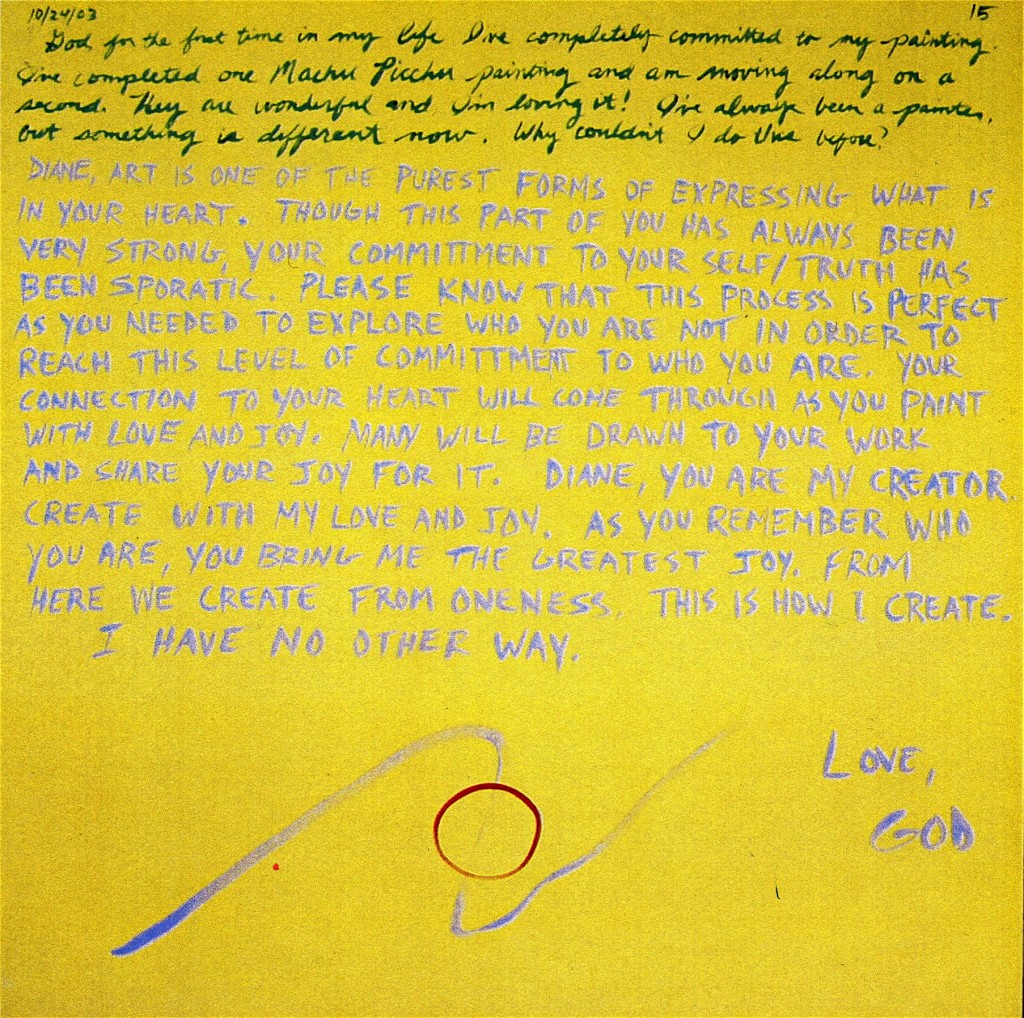 10/24/03
15
God for the first time in my life I've completely committed to my painting.
I've completed one Machu Picchu painting and am moving along on a
second. They are wonderful and I'm loving it! I've always been a painter,
but something is different now. Why couldn't I do this before?
DIANE, ART IS ONE OF THE PUREST FORMS OF EXPRESSING WHAT IS
IN YOUR HEART. THOUGH THIS PART OF YOU HAS ALWAYS BEEN
VERY STRONG, YOUR COMMITTMENT TO YOUR SELF/TRUTH HAS
BEEN SPORATIC. PLEASE KNOW THAT THIS PROCESS IS PERFECT
AS YOU NEEDED TO EXPLORE WHO YOU ARE NOT IN ORDER TO
REACH THIS LEVEL OF COMMITTMENT TO WHO YOU ARE. YOUR
CONNECTION TO YOUR HEART WILL COME THROUGH AS YOU PAINT
WITH LOVE AND JOY. MANY WILL BE DRAWN TO YOUR WORK
AND SHARE YOUR JOY FOR IT. DIANE, YOU ARE MY CREATOR.
CREATE WITH MY LOVE AND JOY. AS YOU REMEMBER WHO
YOU ARE, YOU BRING ME THE GREATEST JOY. FROM
HERE WE CREATE FROM ONENESS. THIS IS HOW I CREATE.
I HAVE NO OTHER WAY.
LOVE,
GOD